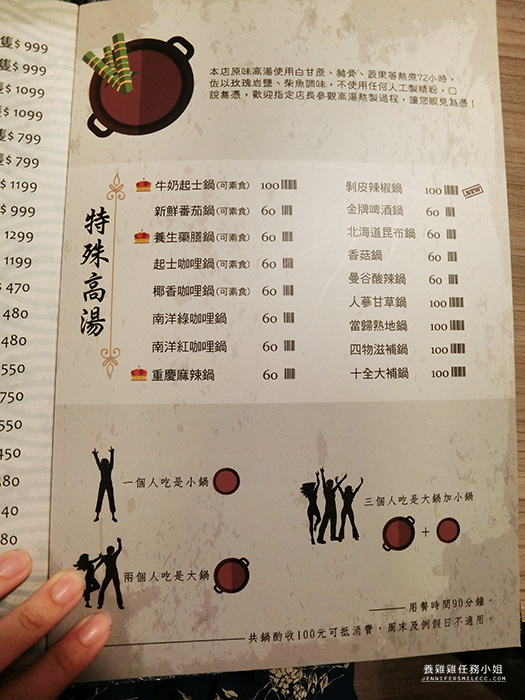 隻$ 999
隻$ 999
$ 1099
$ 1099
$ 799
$ 799
$ 1199
$ 999
1299
1199
$ 470
480
480
550
750
550
480
480
540
380
本店原味高湯使用白甘蔗、豬骨、蔬果等熬煮72小時，
佐以玫瑰岩鹽、柴魚調味，不使用任何人工製精粉，口
說無憑，歡迎指定店長參觀高湯熬製過程，讓您眼見為憑！
特殊高湯
牛奶起士鍋(可素食) 100
新鮮番茄鍋(可素食) 60
養生藥膳鍋(可素食) 60
起士咖哩鍋(可素食) 60
椰香咖哩鍋(可素食) 60
南洋綠咖哩鍋 60
南洋紅咖哩鍋 60
重慶麻辣鍋 60
剝皮辣椒鍋 100 NEW
金牌啤酒鍋 60
北海道昆布鍋 60
香菇鍋 60
曼谷酸辣鍋 60
人蔘甘草鍋 100
當歸熟地鍋 100
四物滋補鍋 100
十全大補鍋 100
一個人吃是小鍋
兩個人吃是大鍋
三個人吃是大鍋加小鍋
+
用餐時間90分鐘。
共鍋酌收100元可抵消費，周末及例假日不適用。
養雞雞任務小姐
JENNIFERSMILECC.COM